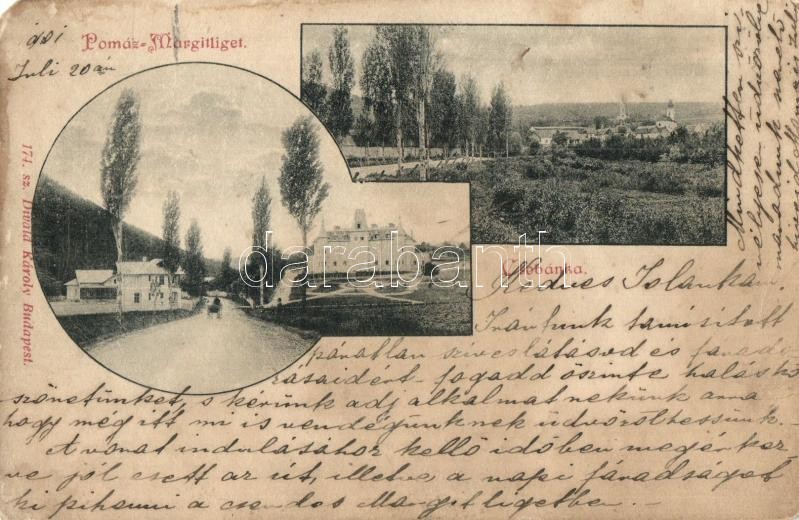 901
Juli 20án
Pomáz-Margitliget.
174. sz. Divald Károly Budapest.
Csobánka.
darabanth.com
Kedves Iolankám,
Irántunk tanúsitott
páratlan szíveslátásod és fárado-
zásaidért fogadd őszinte hálás kö
szönetünket, s kérünk adj alkalmat nekünk arra
hogy még itt mi is vendégünknek üdvözölhessünk.
A vonat indulásához kellő időben megérkez
ve jól esett az út, illetve a napi fáradságot
ki pihenni a csendes Margitligetben.
Mindketten szi
vélyesen üdvözölve